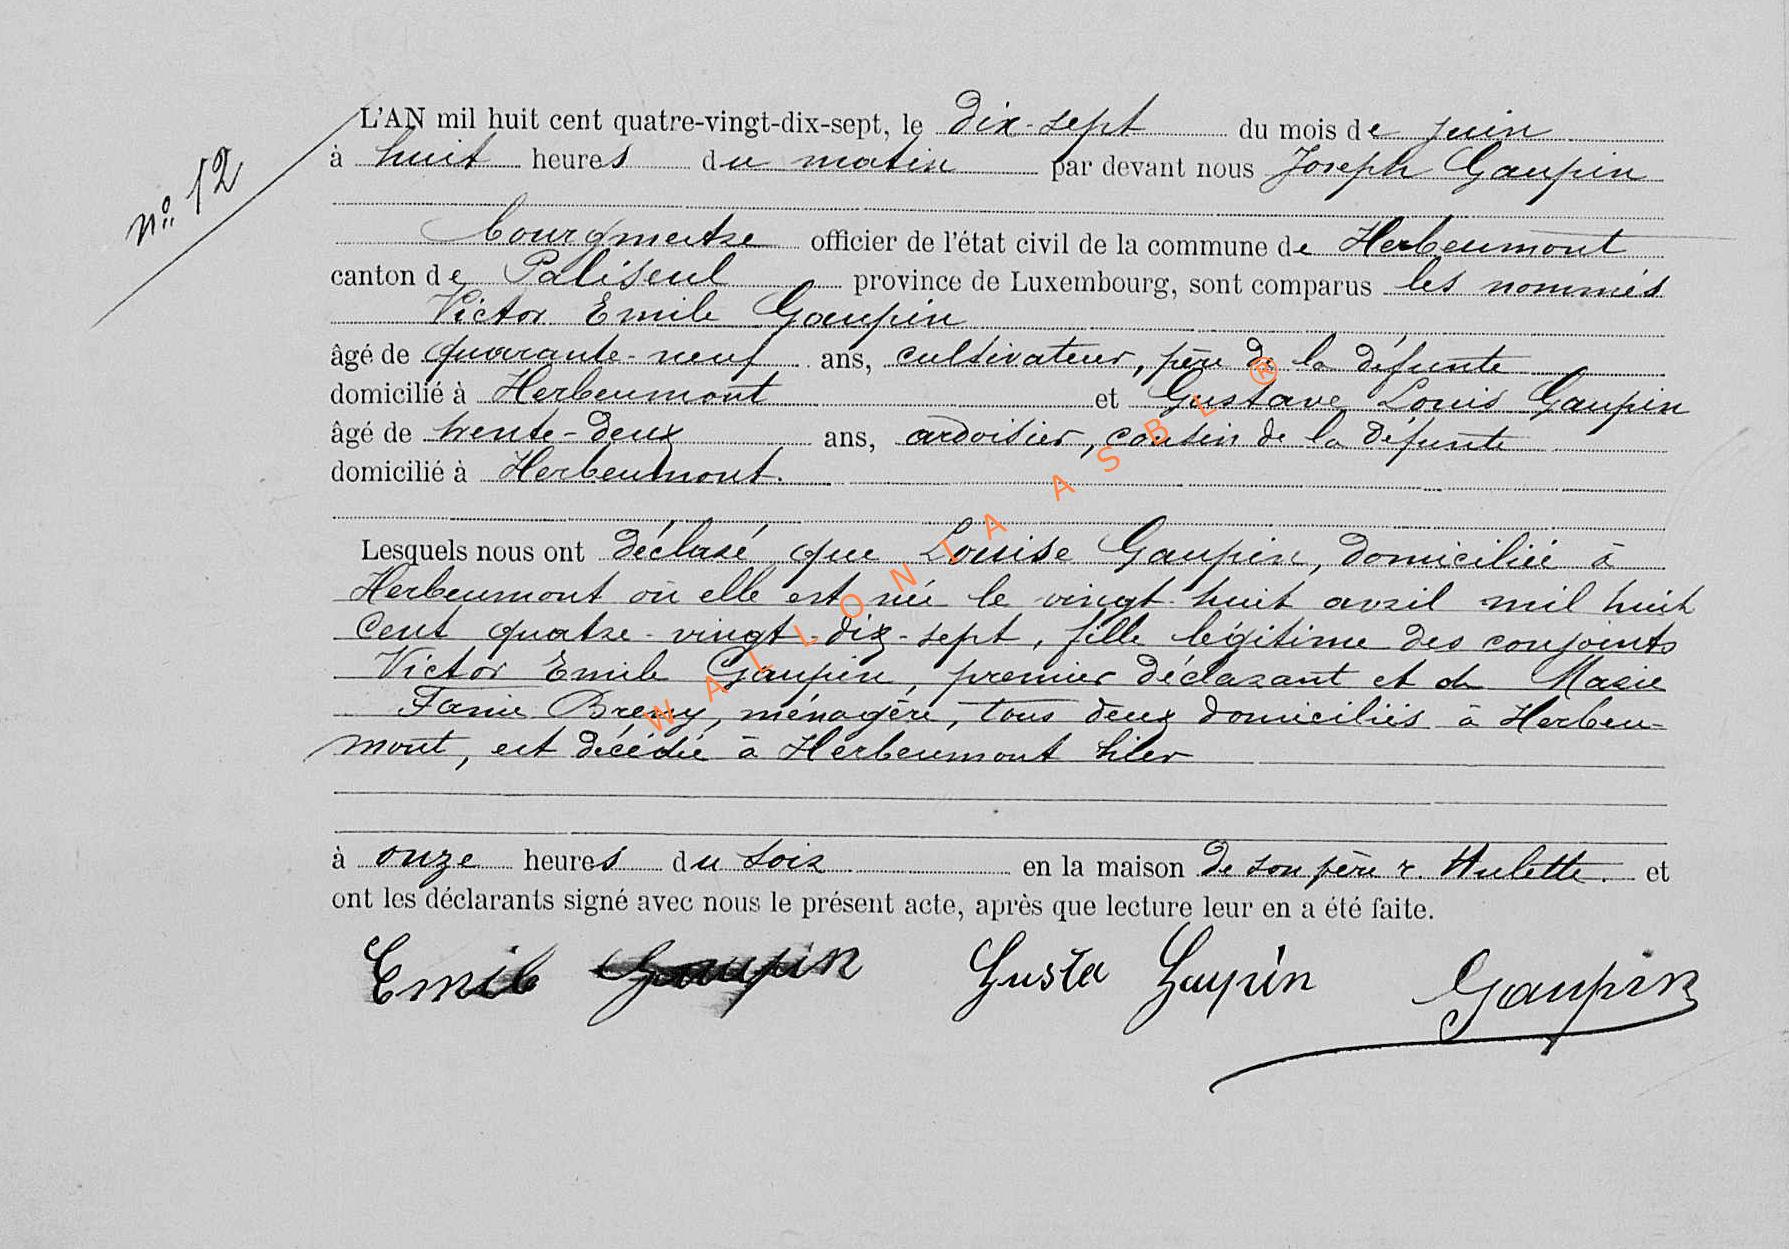 n° 12
L'AN mil huit cent quatre-vingt-dix-sept, le dix-sept du mois de juin
à huit heures du matin par devant nous Joseph Gaupin
bourgmestre officier de l'état civil de la commune de Herbeumont
canton de Paliseul province de Luxembourg, sont comparus les nommés
Victor Emile Gaupin
âgé de quarante-neuf ans, cultivateur, père de la défunte
domicilié à Herbeumont et Gustave Louis Gaupin
âgé de trente-deux ans, ardoisier, cousin de la défunte
domicilié à Herbeumont.
Lesquels nous ont déclaré que Louise Gaupin, domiciliée à
Herbeumont où elle est née le vingt-huit avril mil huit
cent quatre-vingt-dix-sept, fille légitime des conjoints
Victor Emile Gaupin, premier déclarant et de Marie
Fanie Bremy, ménagère, tous deux domiciliés à Herbeu-
mont, est décédée à Herbeumont hier
à onze heures du soir en la maison de son père r. Hulette. et
ont les déclarants signé avec nous le présent acte, après que lecture leur en a été faite.
Emile Gaupin Gusta Gaupin Gaupin
WALLONIA ASBL ®